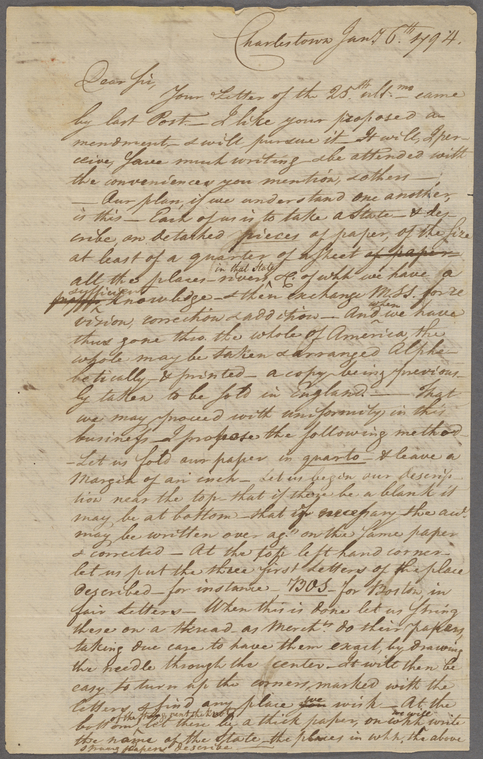 Charlestown Jany 6th 1794.
Dear Sir,
Your Letter of the 25th ult.mo came
by last Post — I like your proposed a
mendment — & will pursue it It will, I per-
ceive, save much writing & be attended with
the conveniences you mention, & others —
Our plan, if we understand one another,
is this — Each of us is to take a State — & des
cribe, on detached pieces of paper, of the size
at least of a quarter of a Sheet of paper —
all the places — rivers in that State &c. of whh we have a
sufficient knowledge — & then exchange MSS. for re
vision, correction & addition — And when we have
thus gone thro. the whole of America, the
whole may be taken & arranged Alpha-
betically — & printed — a copy being previous-
ly taken to be sold in England. — That
we may proceed with uniformity in this
business — I propose the following method —
— Let us fold our paper in quarto — & leave a
Margin of an inch — Let us begin our descrip-
tion near the top — that if there be a blank it
may be at bottom — that if necessary the acct
may be written over agn on the same paper
& corrected — At the top left hand corner
let us put the three first Letters of the place
described — for instance BOS — for Boston, in
fair Letters — When this is done let us string
these on a thread as Merchts do their papers,
taking due care to have them exact, by drawing
the needle through the center — It will then be
easy to turn up the corners, marked with the
letters, & find any place we wish — At the
bottom let there be a thick paper, on whh we will write
the name of the State — the places in whh, the above
strung papers describe —